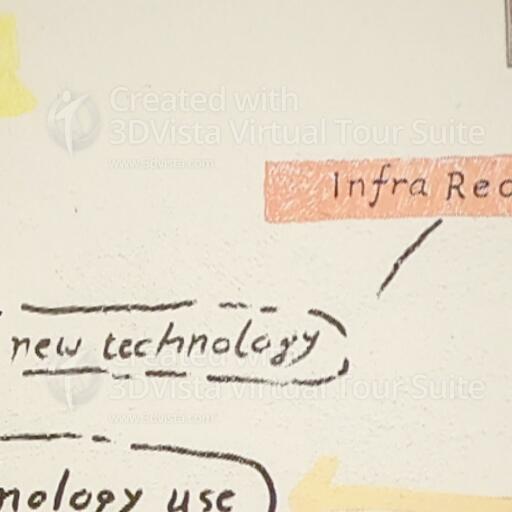 Created with
3DVista Virtual Tour Suite
www.3dvista.com
Infra Red
new technology
3DVista Virtual Tour Suite
www.3dvista.com
nology use